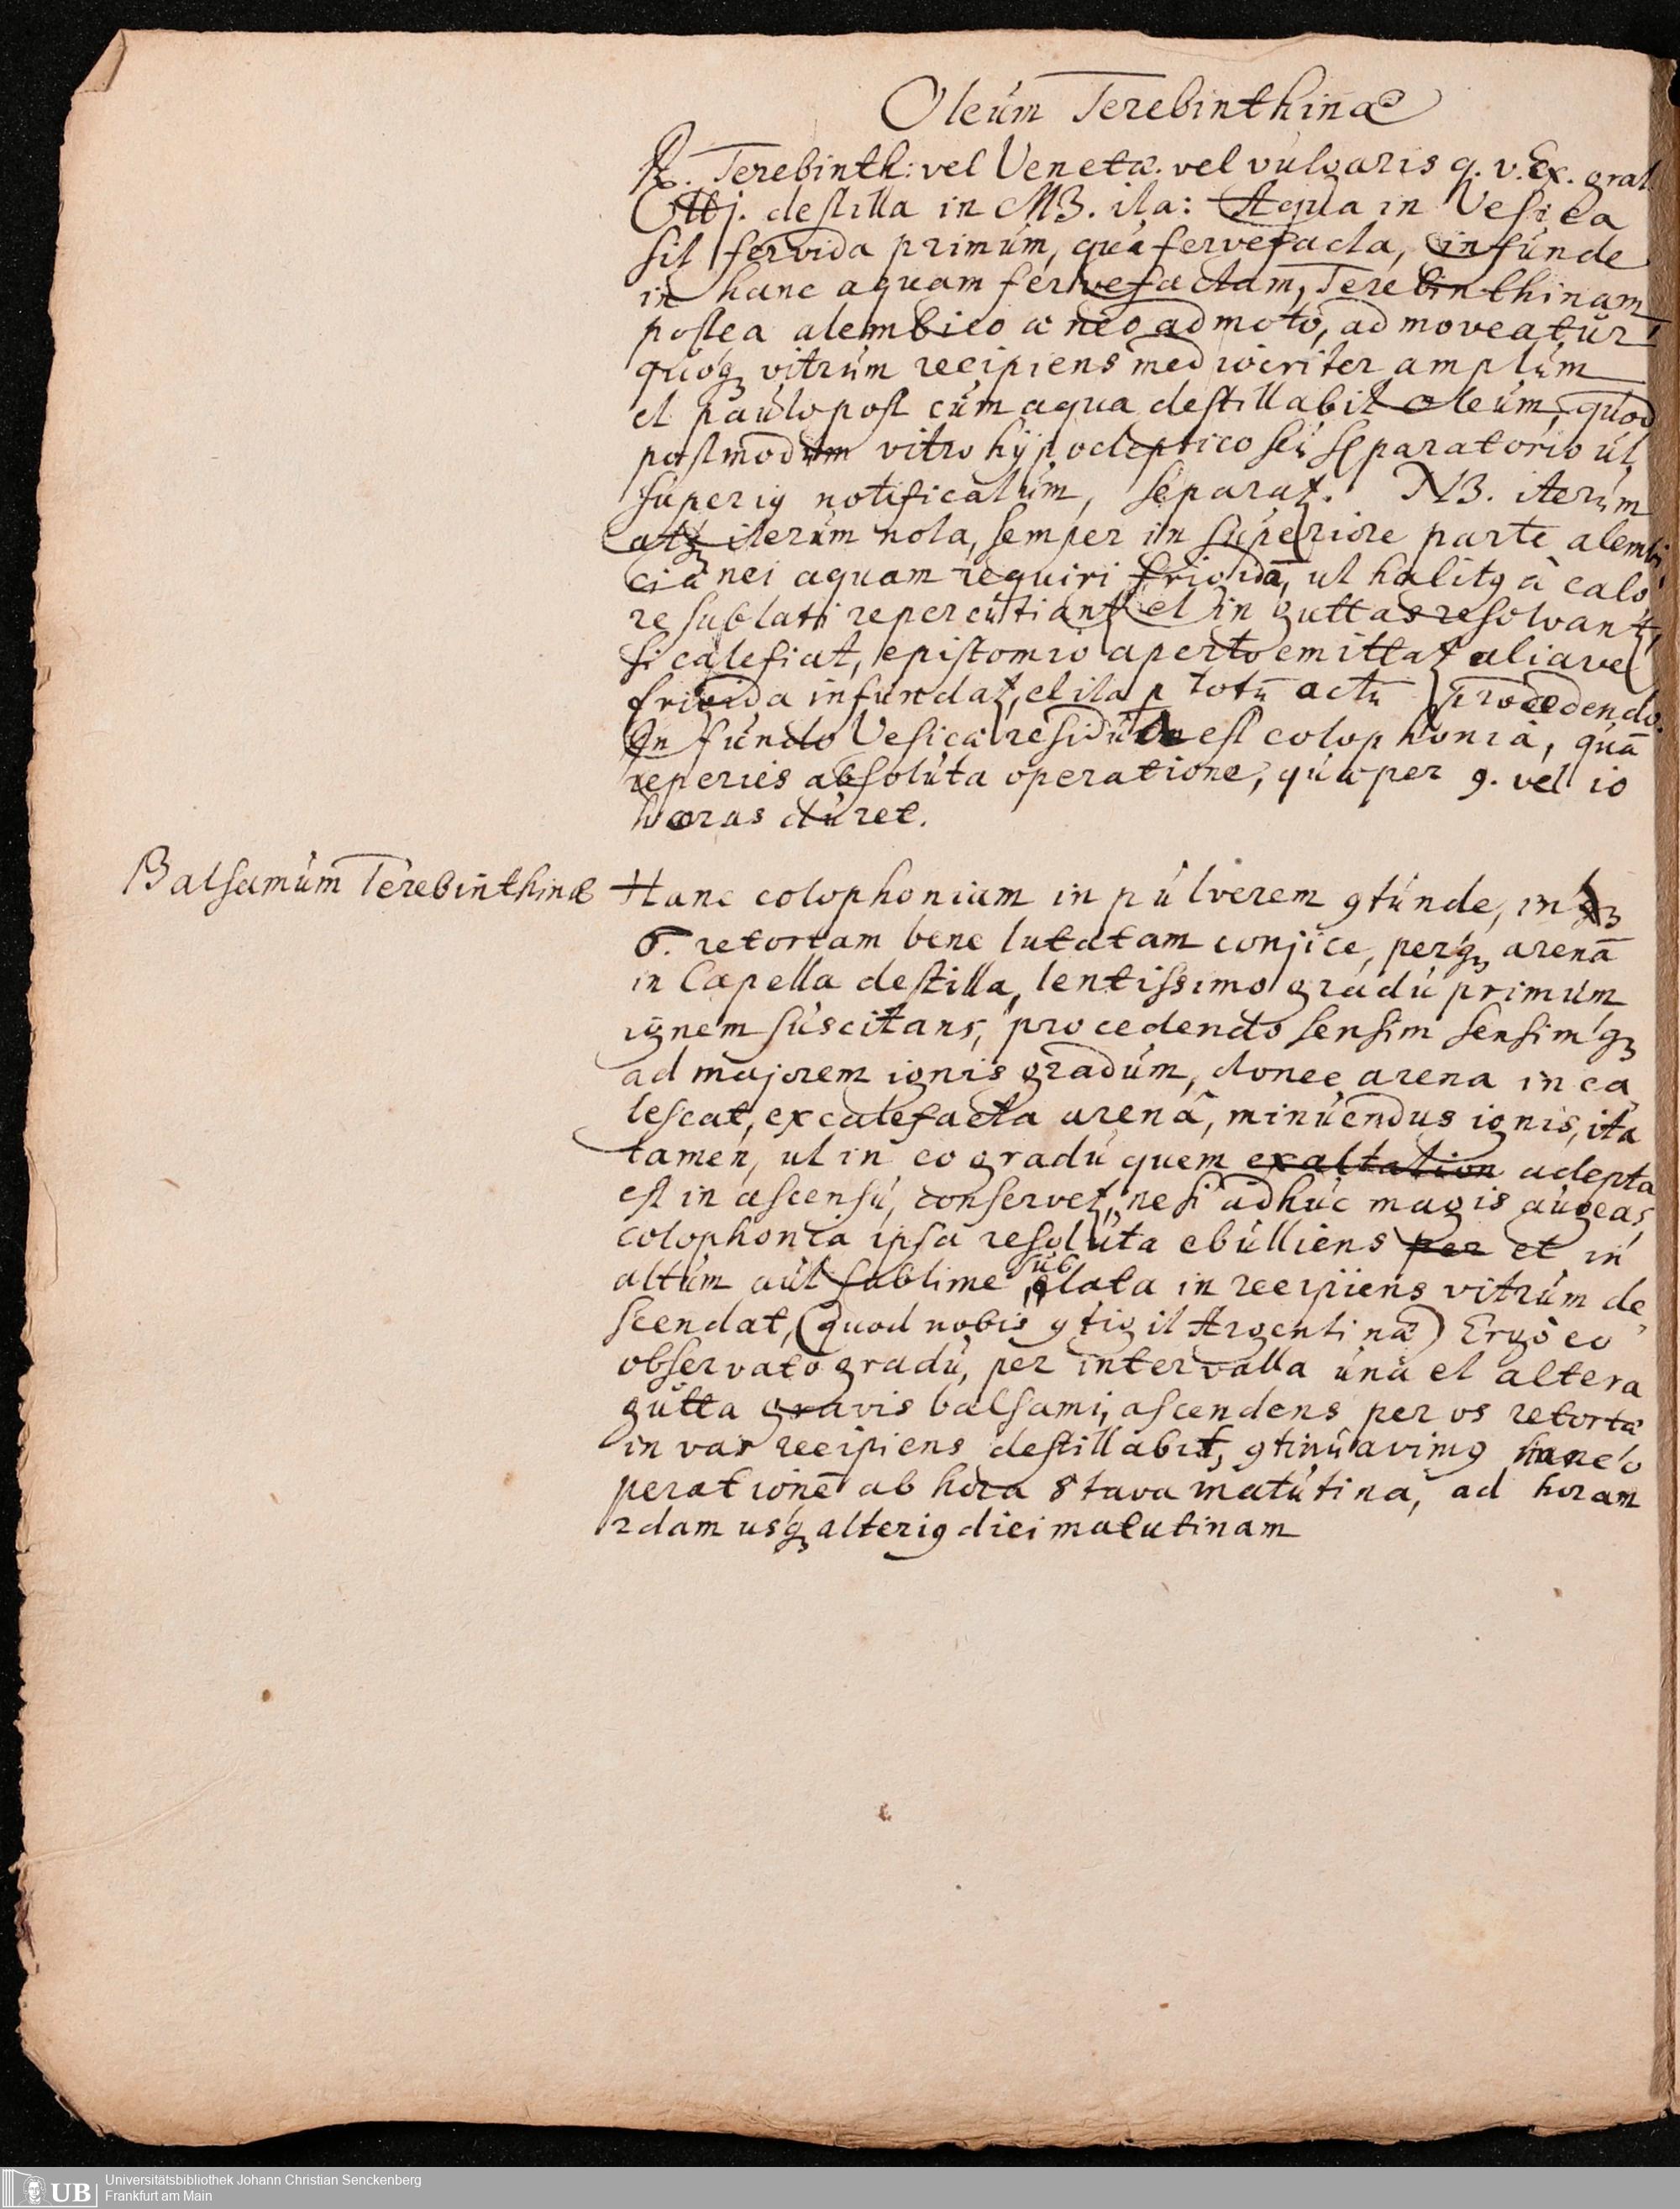 Oleum Terebinthinæ
R. Terebinth: vel Venetæ. vel vulgaris q. v. Ex. grat
℔j. destilla in MB. ita: Aqua in Vesica
sit fervida primùm, quâ fervefacta, infunde
in hanc aquam fervefactam, Terebinthinam
postea alembico æneo admoto, admoveatur
quoq; vitrum recipiens mediocriter amplum
et paulopost cum aqua destillabit oleum, quod
postmodum vitro hypocleptico seu separatorio ut
superiꝰ notificatum, separat. NB. iterum
atq; iterum nota, semper in superiore parte alembi
ci ænei aquam requiri frigidā, ut halitꝰ à calo
re sublati repercutiant et in guttas resolvant,
si calefiat, epistomio aperto emittat aliave
frigida infundat, et ita p totū actū procedendo.
In fundo Vesicæ residuum est colophonia, quā
reperies absoluta operatione, quæ per 9. vel 10
horas duret.
Balsamum Terebinthinæ
Hanc colophoniam in pulverem ꝯtunde, inq;
retortam bene lutatam conjice, perq; arenā
in Capella destilla, lentissimo gradu primùm
ignem suscitans, procedendo sensim sensimq;
ad majorem ignis gradum, donec arena inca
lescat, excalefacta arenâ, minuendus ignis, ita
tamen, ut in eo gradu quem exaltation adepta
est in ascensu, conservet, ne si adhuc magis augeas
colophonia ipsa resoluta ebulliens per et in
altum aut sublime sublata in recipiens vitrum de
scendat, (quod nobis ꝯtigit Argentinæ) Ergò eo
observato gradu, per intervalla una et altera
gutta gravis balsami, ascendens per os retortæ
in vas recipiens destillabit, ꝯtinuavimꝰ hanc o
perationē ab hora 8tava matutina, ad horam
2dam usq; alteriꝰ diei matutinam
Universitätsbibliothek Johann Christian Senckenberg
Frankfurt am Main
UB